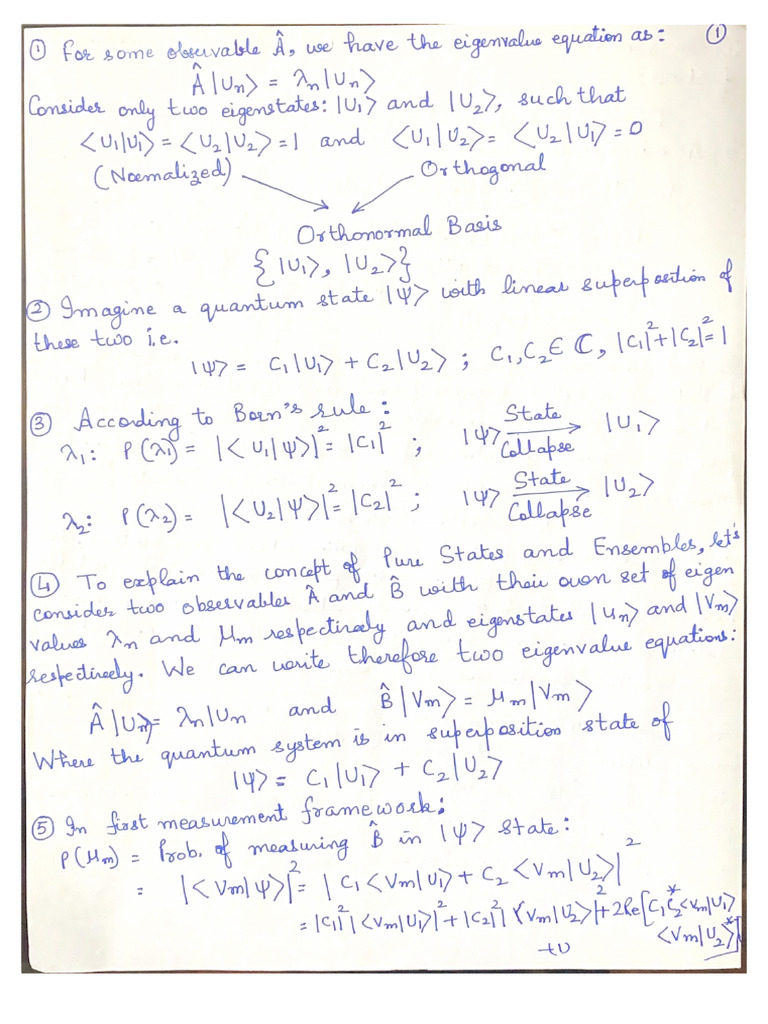 ① For some observable Â, we have the eigenvalue equation as: ①
Â|Un⟩ = λn|Un⟩
Consider only two eigenstates: |U1⟩ and |U2⟩, such that
⟨U1|U1⟩ = ⟨U2|U2⟩ = 1 and ⟨U1|U2⟩ = ⟨U2|U1⟩ = 0
(Normalized) Orthogonal
Orthonormal Basis
{|U1⟩, |U2⟩}
② Imagine a quantum state |Ψ⟩ with linear superposition of
these two i.e.
|Ψ⟩ = C1|U1⟩ + C2|U2⟩ ; C1, C2 ∈ ℂ, |C1|² + |C2|² = 1
③ According to Born's rule:
λ1: P(λ1) = |⟨U1|Ψ⟩|² = |C1|² ; |Ψ⟩ State Collapse → |U1⟩
λ2: P(λ2) = |⟨U2|Ψ⟩|² = |C2|² ; |Ψ⟩ State Collapse → |U2⟩
④ To explain the concept of Pure States and Ensembles, let's
consider two observables Â and B̂ with their own set of eigen
values λn and μm respectively and eigenstates |un⟩ and |Vm⟩
respectively. We can write therefore two eigenvalue equations:
Â|Un⟩ = λn|Un and B̂|Vm⟩ = μm|Vm⟩
Where the quantum system is in superposition state of
|Ψ⟩ = C1|U1⟩ + C2|U2⟩
⑤ In first measurement framework:
P(μm) = Prob. of measuring B̂ in |Ψ⟩ state:
= |⟨Vm|Ψ⟩|² = |C1⟨Vm|U1⟩ + C2⟨Vm|U2⟩|²
= |C1|²|⟨Vm|U1⟩|² + |C2|²|⟨Vm|U2⟩|² + 2Re[C1C2*⟨Vm|U1⟩
⟨Vm|U2⟩*]